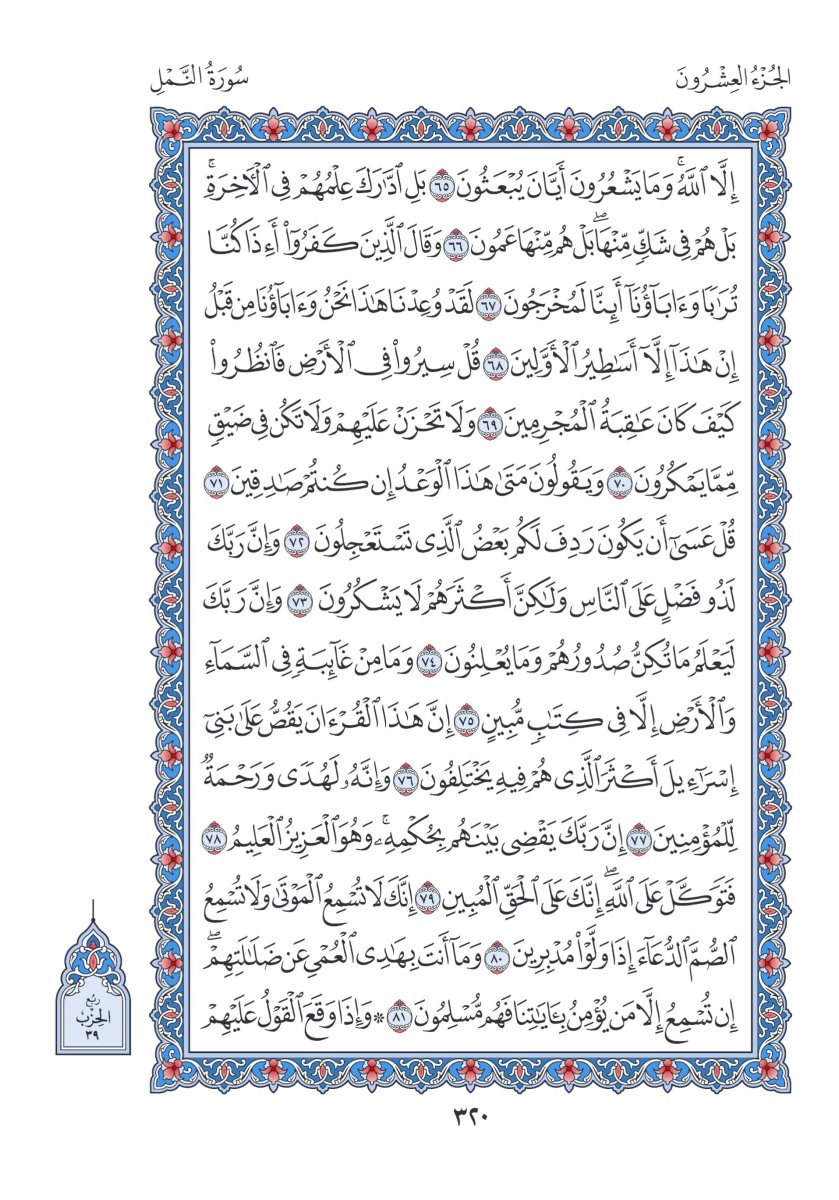 الجُزْءُ العِشْرُونَ
سُورَةُ النَّمْلِ
إِلَّا ٱللَّهُۚ وَمَا يَشْعُرُونَ أَيَّانَ يُبْعَثُونَ ٦٥ بَلِ ٱدَّٰرَكَ عِلْمُهُمْ فِى ٱلْأٓخِرَةِۚ
بَلْ هُمْ فِى شَكٍّ مِّنْهَاۖ بَلْ هُم مِّنْهَا عَمُونَ ٦٦ وَقَالَ ٱلَّذِينَ كَفَرُوٓا۟ أَءِذَا كُنَّا
تُرَٰبًا وَءَابَآؤُنَآ أَئِنَّا لَمُخْرَجُونَ ٦٧ لَقَدْ وُعِدْنَا هَٰذَا نَحْنُ وَءَابَآؤُنَا مِن قَبْلُ
إِنْ هَٰذَآ إِلَّآ أَسَٰطِيرُ ٱلْأَوَّلِينَ ٦٨ قُلْ سِيرُوا۟ فِى ٱلْأَرْضِ فَٱنظُرُوا۟
كَيْفَ كَانَ عَٰقِبَةُ ٱلْمُجْرِمِينَ ٦٩ وَلَا تَحْزَنْ عَلَيْهِمْ وَلَا تَكُن فِى ضَيْقٍ
مِّمَّا يَمْكُرُونَ ٧٠ وَيَقُولُونَ مَتَىٰ هَٰذَا ٱلْوَعْدُ إِن كُنتُمْ صَٰدِقِينَ ٧١
قُلْ عَسَىٰٓ أَن يَكُونَ رَدِفَ لَكُم بَعْضُ ٱلَّذِى تَسْتَعْجِلُونَ ٧٢ وَإِنَّ رَبَّكَ
لَذُو فَضْلٍ عَلَى ٱلنَّاسِ وَلَٰكِنَّ أَكْثَرَهُمْ لَا يَشْكُرُونَ ٧٣ وَإِنَّ رَبَّكَ
لَيَعْلَمُ مَا تُكِنُّ صُدُورُهُمْ وَمَا يُعْلِنُونَ ٧٤ وَمَا مِنْ غَآئِبَةٍ فِى ٱلسَّمَآءِ
وَٱلْأَرْضِ إِلَّا فِى كِتَٰبٍ مُّبِينٍ ٧٥ إِنَّ هَٰذَا ٱلْقُرْءَانَ يَقُصُّ عَلَىٰ بَنِىٓ
إِسْرَٰٓءِيلَ أَكْثَرَ ٱلَّذِى هُمْ فِيهِ يَخْتَلِفُونَ ٧٦ وَإِنَّهُۥ لَهُدًى وَرَحْمَةٌ
لِّلْمُؤْمِنِينَ ٧٧ إِنَّ رَبَّكَ يَقْضِى بَيْنَهُم بِحُكْمِهِۦۚ وَهُوَ ٱلْعَزِيزُ ٱلْعَلِيمُ ٧٨
فَتَوَكَّلْ عَلَى ٱللَّهِۖ إِنَّكَ عَلَى ٱلْحَقِّ ٱلْمُبِينِ ٧٩ إِنَّكَ لَا تُسْمِعُ ٱلْمَوْتَىٰ وَلَا تُسْمِعُ
ٱلصُّمَّ ٱلدُّعَآءَ إِذَا وَلَّوْا۟ مُدْبِرِينَ ٨٠ وَمَآ أَنتَ بِهَٰدِى ٱلْعُمْىِ عَن ضَلَٰلَتِهِمْۖ
إِن تُسْمِعُ إِلَّا مَن يُؤْمِنُ بِـَٔايَٰتِنَا فَهُم مُّسْلِمُونَ ٨١ ۞ وَإِذَا وَقَعَ ٱلْقَوْلُ عَلَيْهِمْ
رُبُع
الحِزْب
٣٩
٣٢٠